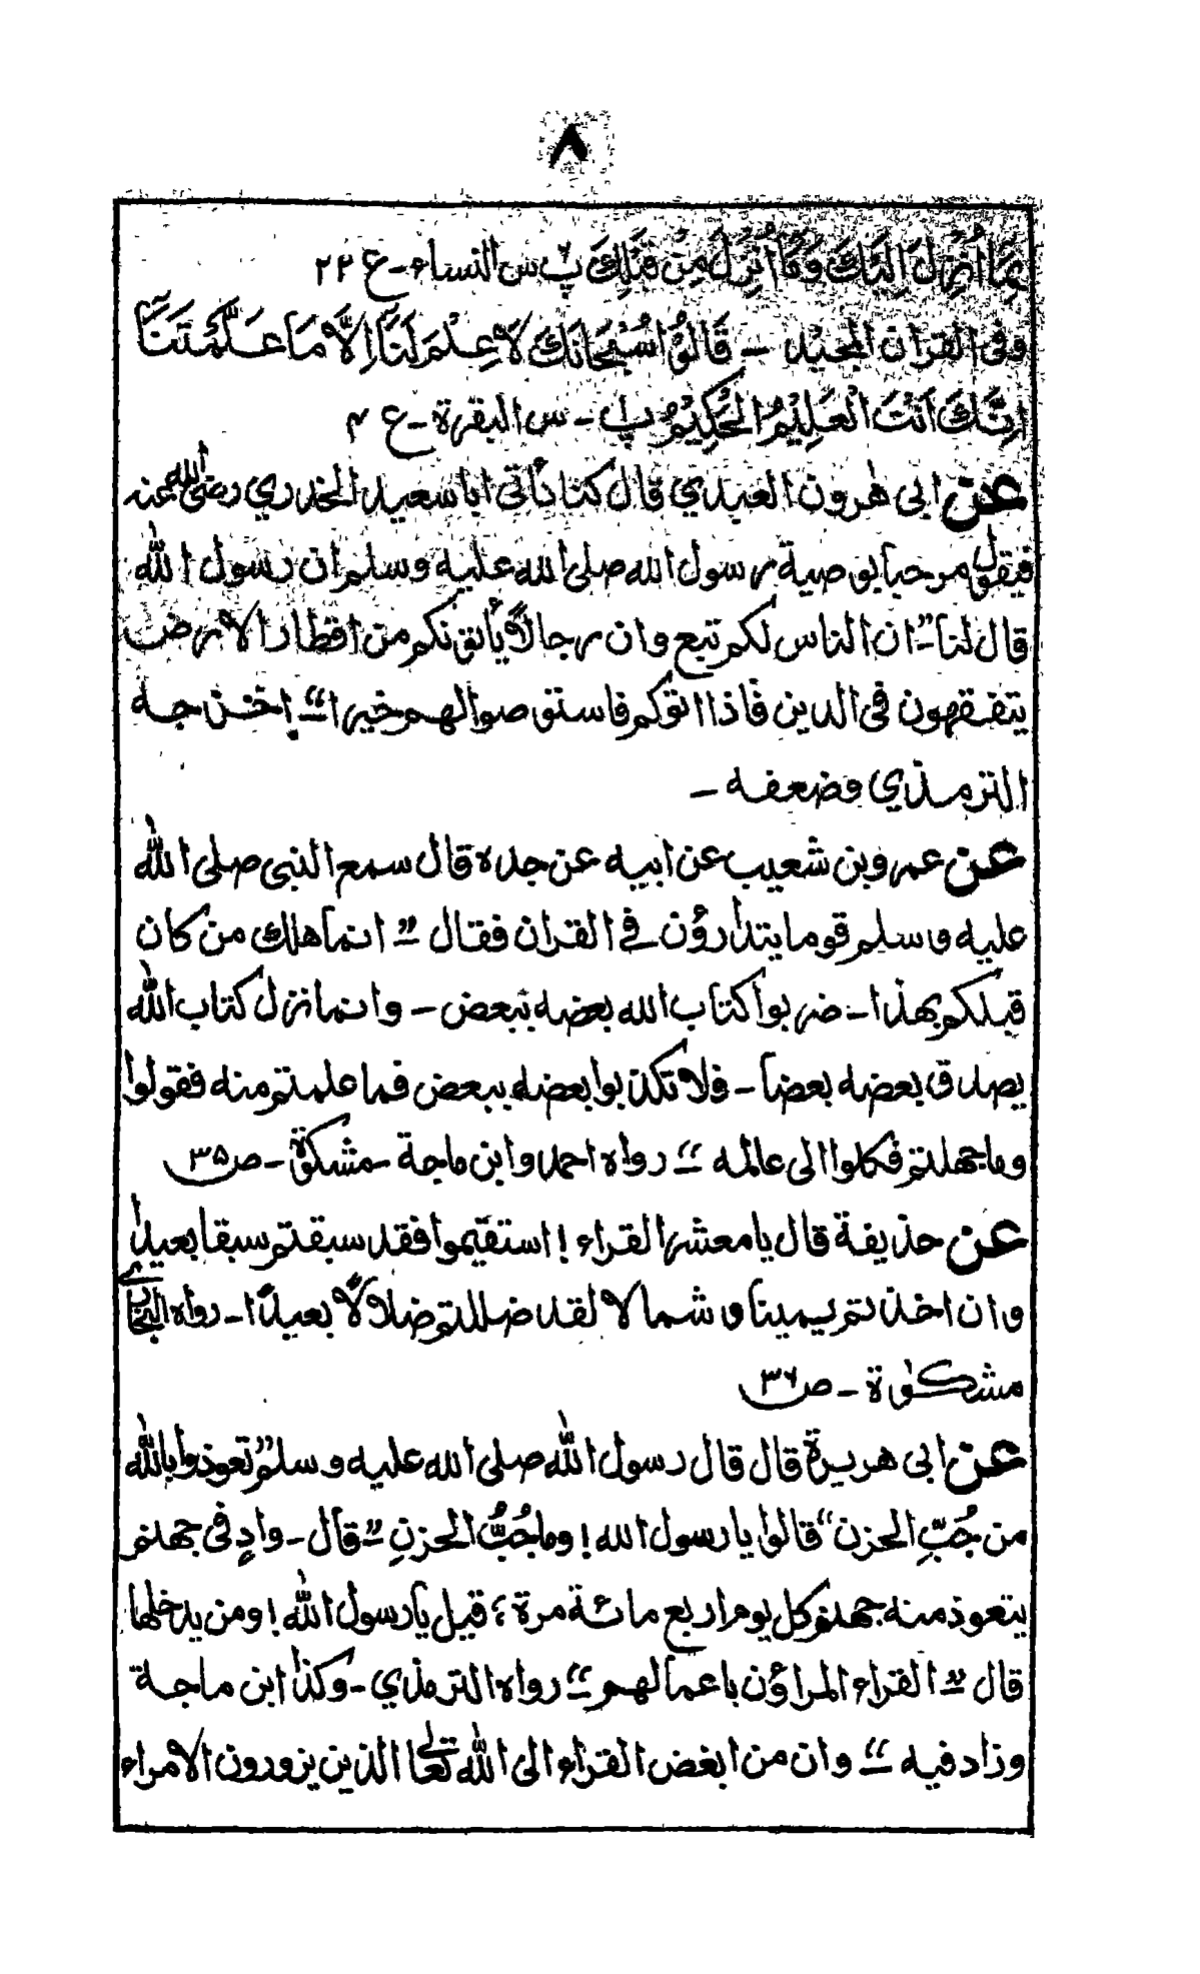 ۸
بِمَا اُنْزِلَ اِلَيْكَ وَمَا اُنْزِلَ مِنْ قَبْلِكَ پ۶ س النساء - ع ۲۲
وفی القراٰن المجید - قَالُوْا سُبْحَانَكَ لَا عِلْمَ لَنَآ اِلَّا مَا عَلَّمْتَنَآ
اِنَّكَ اَنْتَ الْعَلِيْمُ الْحَكِيْمُ پ۱ - س البقرة - ع ۴
عن ابی هٰرون العبدي قال كنا نأتی ابا سعید الخدري رضی الله عنه
فیقول مرحبا بوصیة رسول الله صلی الله علیه وسلم ان رسول الله
قال لنا ”ان الناس لكم تبع وان رجالاً یأتونكم من اقطار الارض
یتفقهون فی الدین فاذا اتوكم فاستوصوا لهم خیرا“ اخرجه
الترمذي وضعفه -
عن عمرو بن شعیب عن ابیه عن جده قال سمع النبی صلی الله
علیه وسلم قوما یتدارؤن فے القراٰن فقال ” انما هلك من كان
قبلكم بهذا - ضربوا كتاب الله بعضه ببعض - وانما نزل كتاب الله
یصدق بعضه بعضا - فلا تكذبوا بعضه ببعض فما علمتم منه فقولوا
وما جهلتم فكلوا الی عالمه “ رواه احمد وابن ماجة - مشكوٰة - ص ۳۵
عن حذیفة قال یا معشر القراء ! استقیموا فقد سبقتم سبقا بعیدا
وان اخذتم یمینا و شمالا لقد ضللتم ضلالاً بعیدًا - رواه البخاری
مشكوٰة - ص ۳۶
عن ابی هریرة قال قال رسول الله صلی الله علیه وسلم ”تعوذوا بالله
من جُبِّ الحزن“ قالوا یا رسول الله ! وما جُبُّ الحزنِ ” قال - وادٍ فی جهنم
یتعوذ منه جهنم كل یوم اربع مائة مرة ؛ قیل یا رسول الله ! ومن یدخلها
قال ” القراء المراؤن باعمالهم “ رواه الترمذي - وكذا ابن ماجة
وزاد فیه “ وان من ابغض القراء الی الله تعالی الذین یزورون الامراء